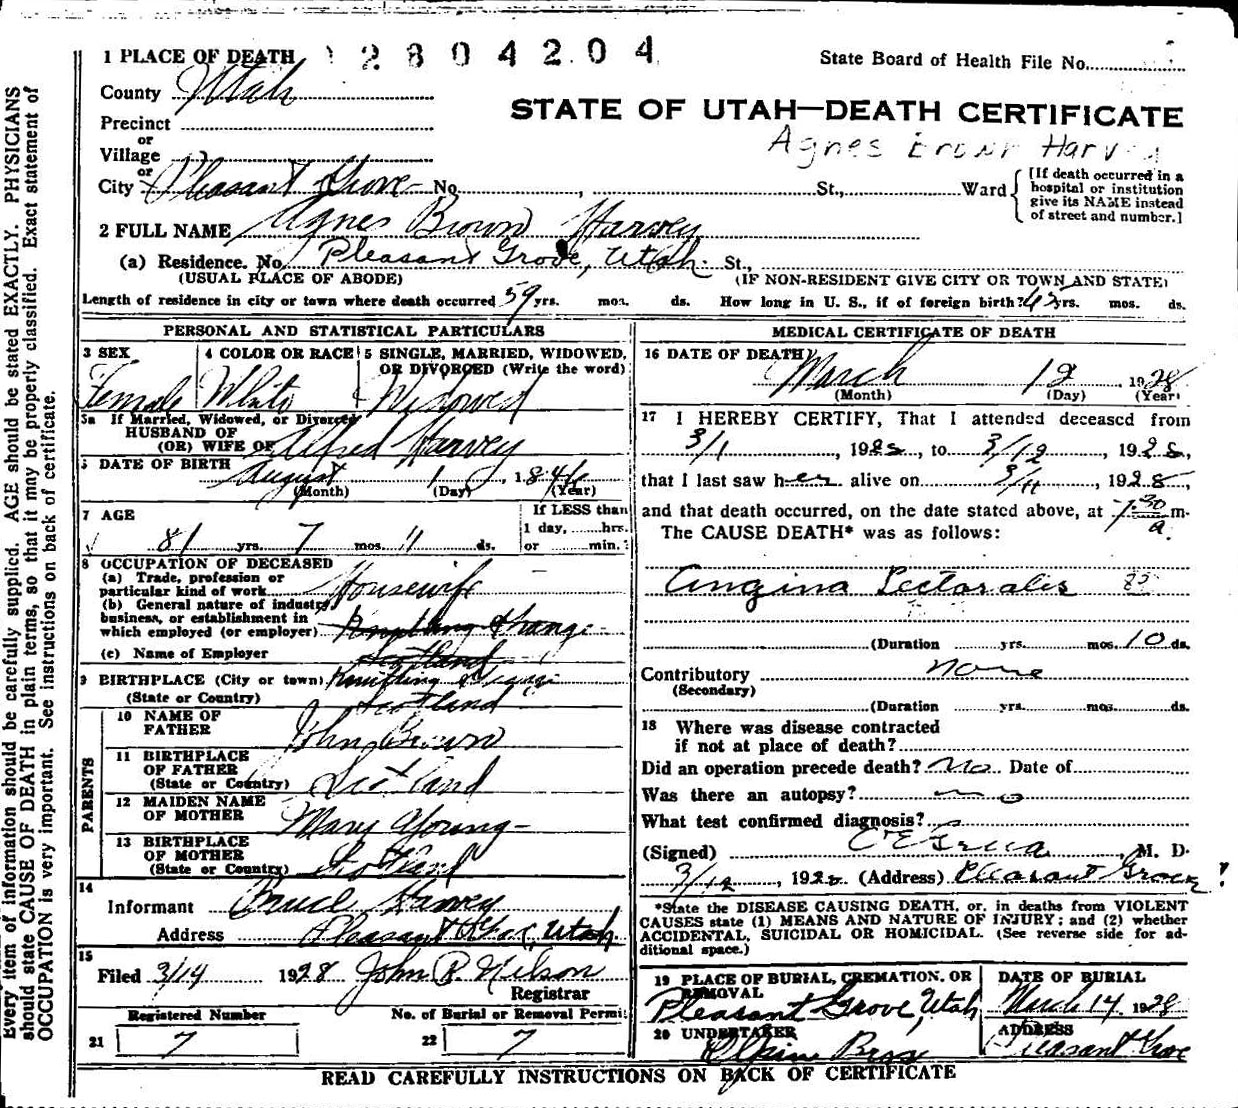 1 PLACE OF DEATH 2804204
State Board of Health File No.
County Utah
STATE OF UTAH—DEATH CERTIFICATE
Precinct
or
Agnes Brown Harvey
Village
or
City Pleasant Grove No. , St., Ward
[If death occurred in a
hospital or institution
give its NAME instead
of street and number.]
2 FULL NAME Agnes Brown Harvey
(a) Residence. No. Pleasant Grove, Utah. St.,
(USUAL PLACE OF ABODE) (IF NON-RESIDENT GIVE CITY OR TOWN AND STATE)
Length of residence in city or town where death occurred 59 yrs. mos. ds. How long in U. S., if of foreign birth? yrs. mos. ds.
PERSONAL AND STATISTICAL PARTICULARS
3 SEX 4 COLOR OR RACE 5 SINGLE, MARRIED, WIDOWED,
OR DIVORCED (Write the word)
Female White Widowed
5a If Married, Widowed, or Divorced
HUSBAND OF
(OR) WIFE OF Alfred Harvey
DATE OF BIRTH
August 1, 1846
(Month) (Day) (Year)
7 AGE If LESS than
1 day, hrs.
81 yrs. 7 mos. 11 ds. or min.
8 OCCUPATION OF DECEASED
(a) Trade, profession or
particular kind of work Housewife
(b) General nature of industry,
business, or establishment in
which employed (or employer)
(c) Name of Employer Scotland
9 BIRTHPLACE (City or town)
(State or Country) Scotland
PARENTS
10 NAME OF
FATHER John Brown
11 BIRTHPLACE
OF FATHER
(State or Country) Scotland
12 MAIDEN NAME
OF MOTHER Mary Young
13 BIRTHPLACE
OF MOTHER
(State or Country) Scotland
14
Informant Harvey
Address Pleasant Grove, Utah.
15
Filed 3/14 1928 John R. Nilson
Registrar
Registered Number No. of Burial or Removal Permit
21 7 22 7
MEDICAL CERTIFICATE OF DEATH
16 DATE OF DEATH
March 12 1928
(Month) (Day) (Year)
17 I HEREBY CERTIFY, That I attended deceased from
3/1, 1928, to 3/12, 1928,
that I last saw her alive on 3/11, 1928,
and that death occurred, on the date stated above, at 1:30 a. m.
The CAUSE DEATH* was as follows:
Angina Pectoralis
(Duration yrs. mos. 10 ds.
Contributory none
(Secondary)
(Duration yrs. mos. ds.
18 Where was disease contracted
if not at place of death?
Did an operation precede death? No Date of
Was there an autopsy? no
What test confirmed diagnosis?
(Signed) M. D.
3/12, 1928 (Address) Pleasant Grove
*State the DISEASE CAUSING DEATH, or, in deaths from VIOLENT
CAUSES state (1) MEANS AND NATURE OF INJURY; and (2) whether
ACCIDENTAL, SUICIDAL OR HOMICIDAL. (See reverse side for ad-
ditional space.)
19 PLACE OF BURIAL, CREMATION, OR
REMOVAL
Pleasant Grove, Utah
DATE OF BURIAL
March 14 1928
20 UNDERTAKER
ADDRESS
Pleasant Grove
READ CAREFULLY INSTRUCTIONS ON BACK OF CERTIFICATE
Every item of information should be carefully supplied. AGE should be stated EXACTLY. PHYSICIANS
should state CAUSE OF DEATH in plain terms, so that it may be properly classified. Exact statement of
OCCUPATION is very important. See instructions on back of certificate.